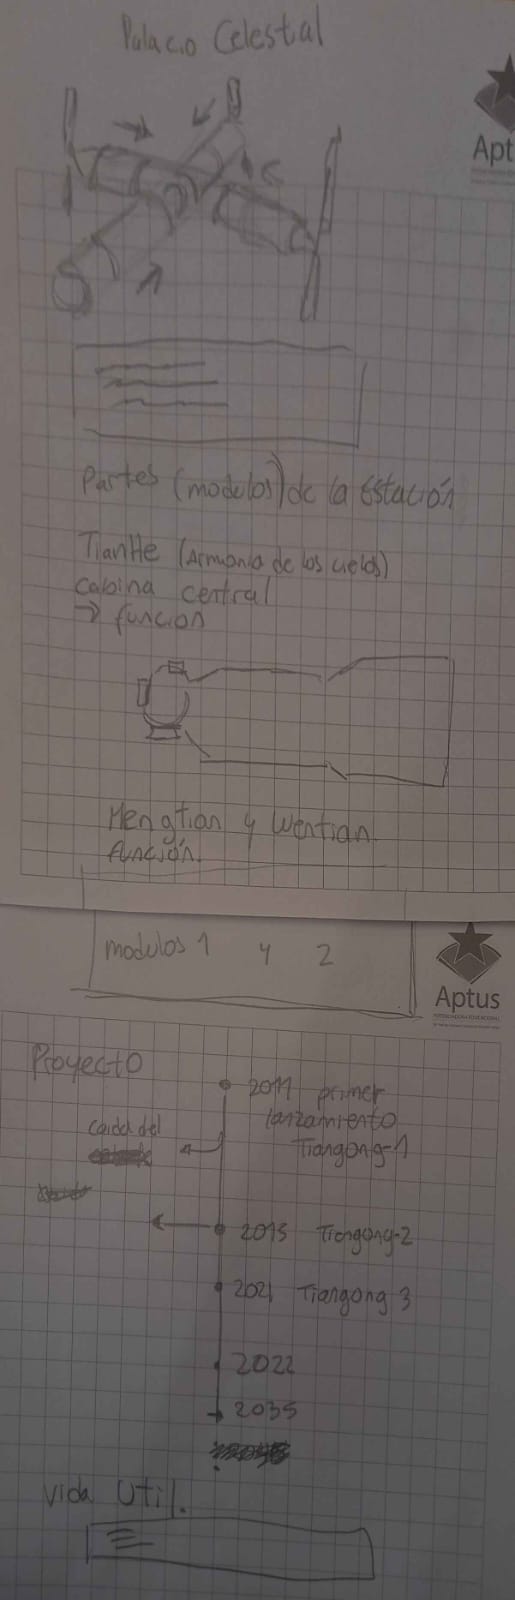 Palacio Celestal
Apt
Partes (modulos) de la Estación
TianHe (Armonia de los cielos)
cabina central
→ funcion
Mengtian y Wentian
función.
modulos 1 y 2
Aptus
Proyecto
2011 primer
lanzamiento
Tiangong-1
caida del
2015 Tiangong-2
2021 Tiangong 3
2022
2035
Vida Util.